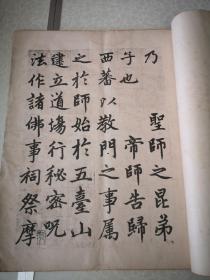 乃　聖師之昆弟
子也　帝師告歸
西蕃以教門之事屬
之於師始於五臺山
建立道場行秘密呪
法作諸佛事祠祭摩